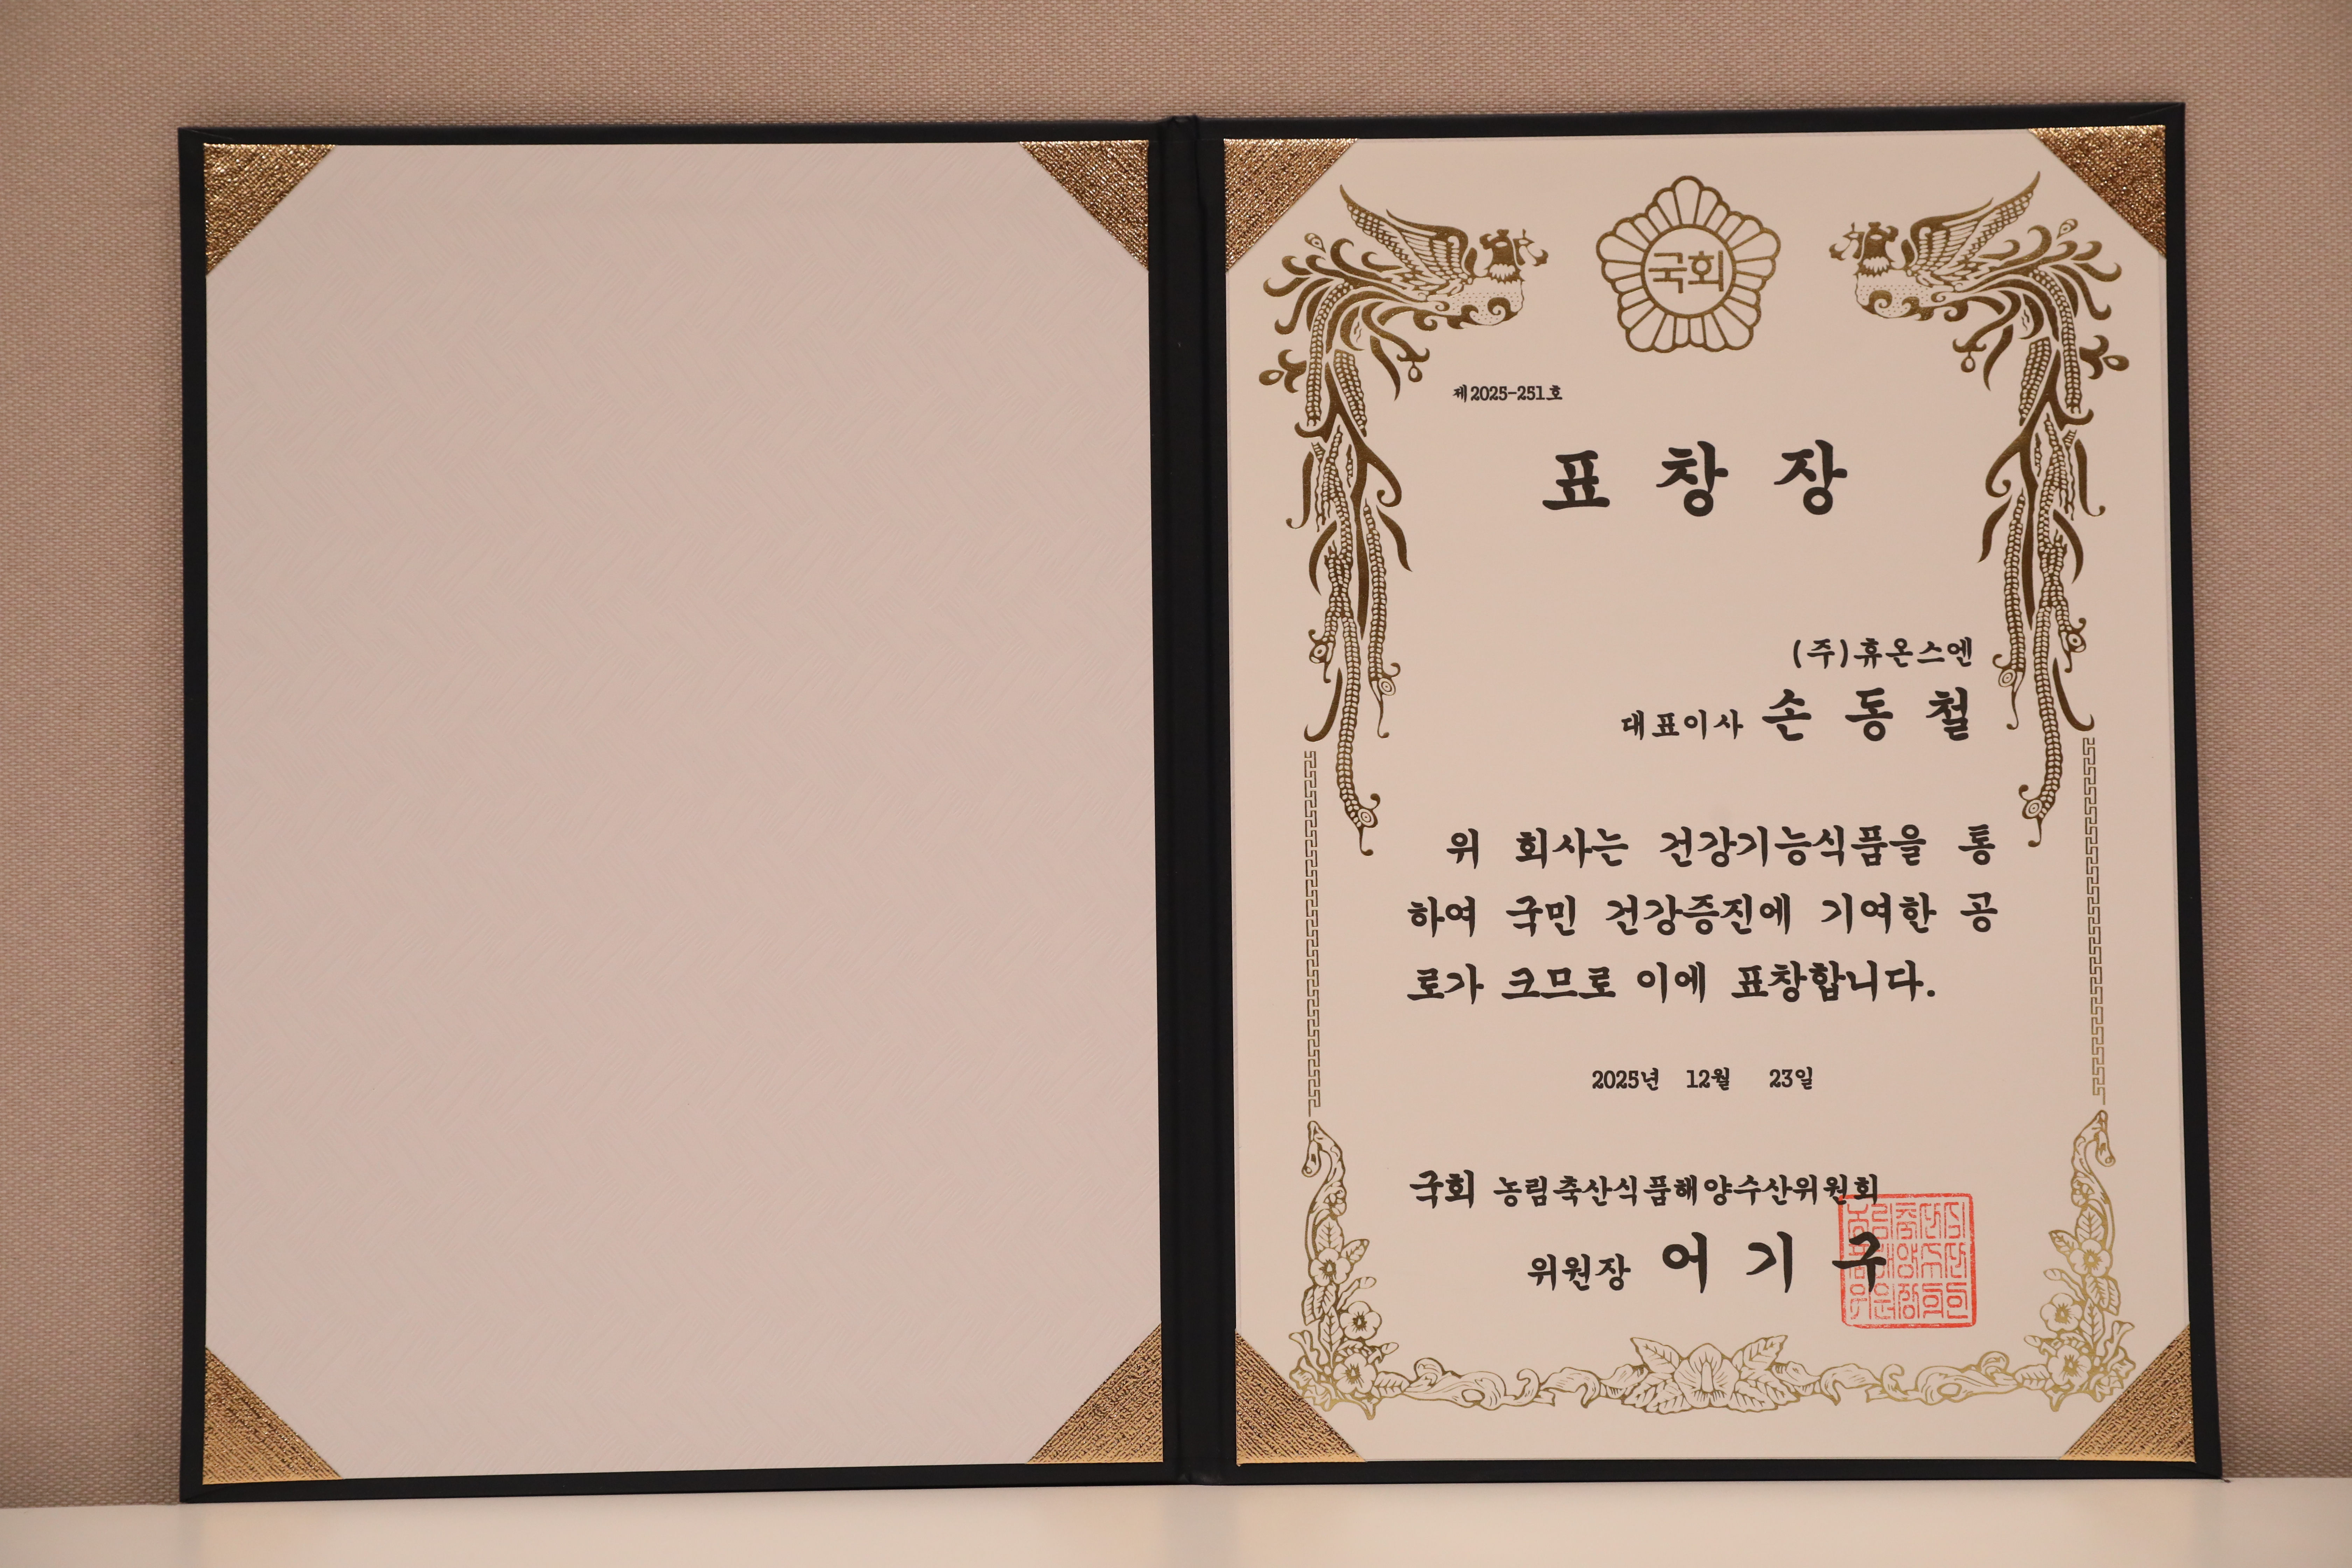 국회
제2025-251호
표 창 장
(주)휴온스엔
대표이사 손 동 철
위 회사는 건강기능식품을 통
하여 국민 건강증진에 기여한 공
로가 크므로 이에 표창합니다.
2025년 12월 23일
국회 농림축산식품해양수산위원회
위원장 어 기 구